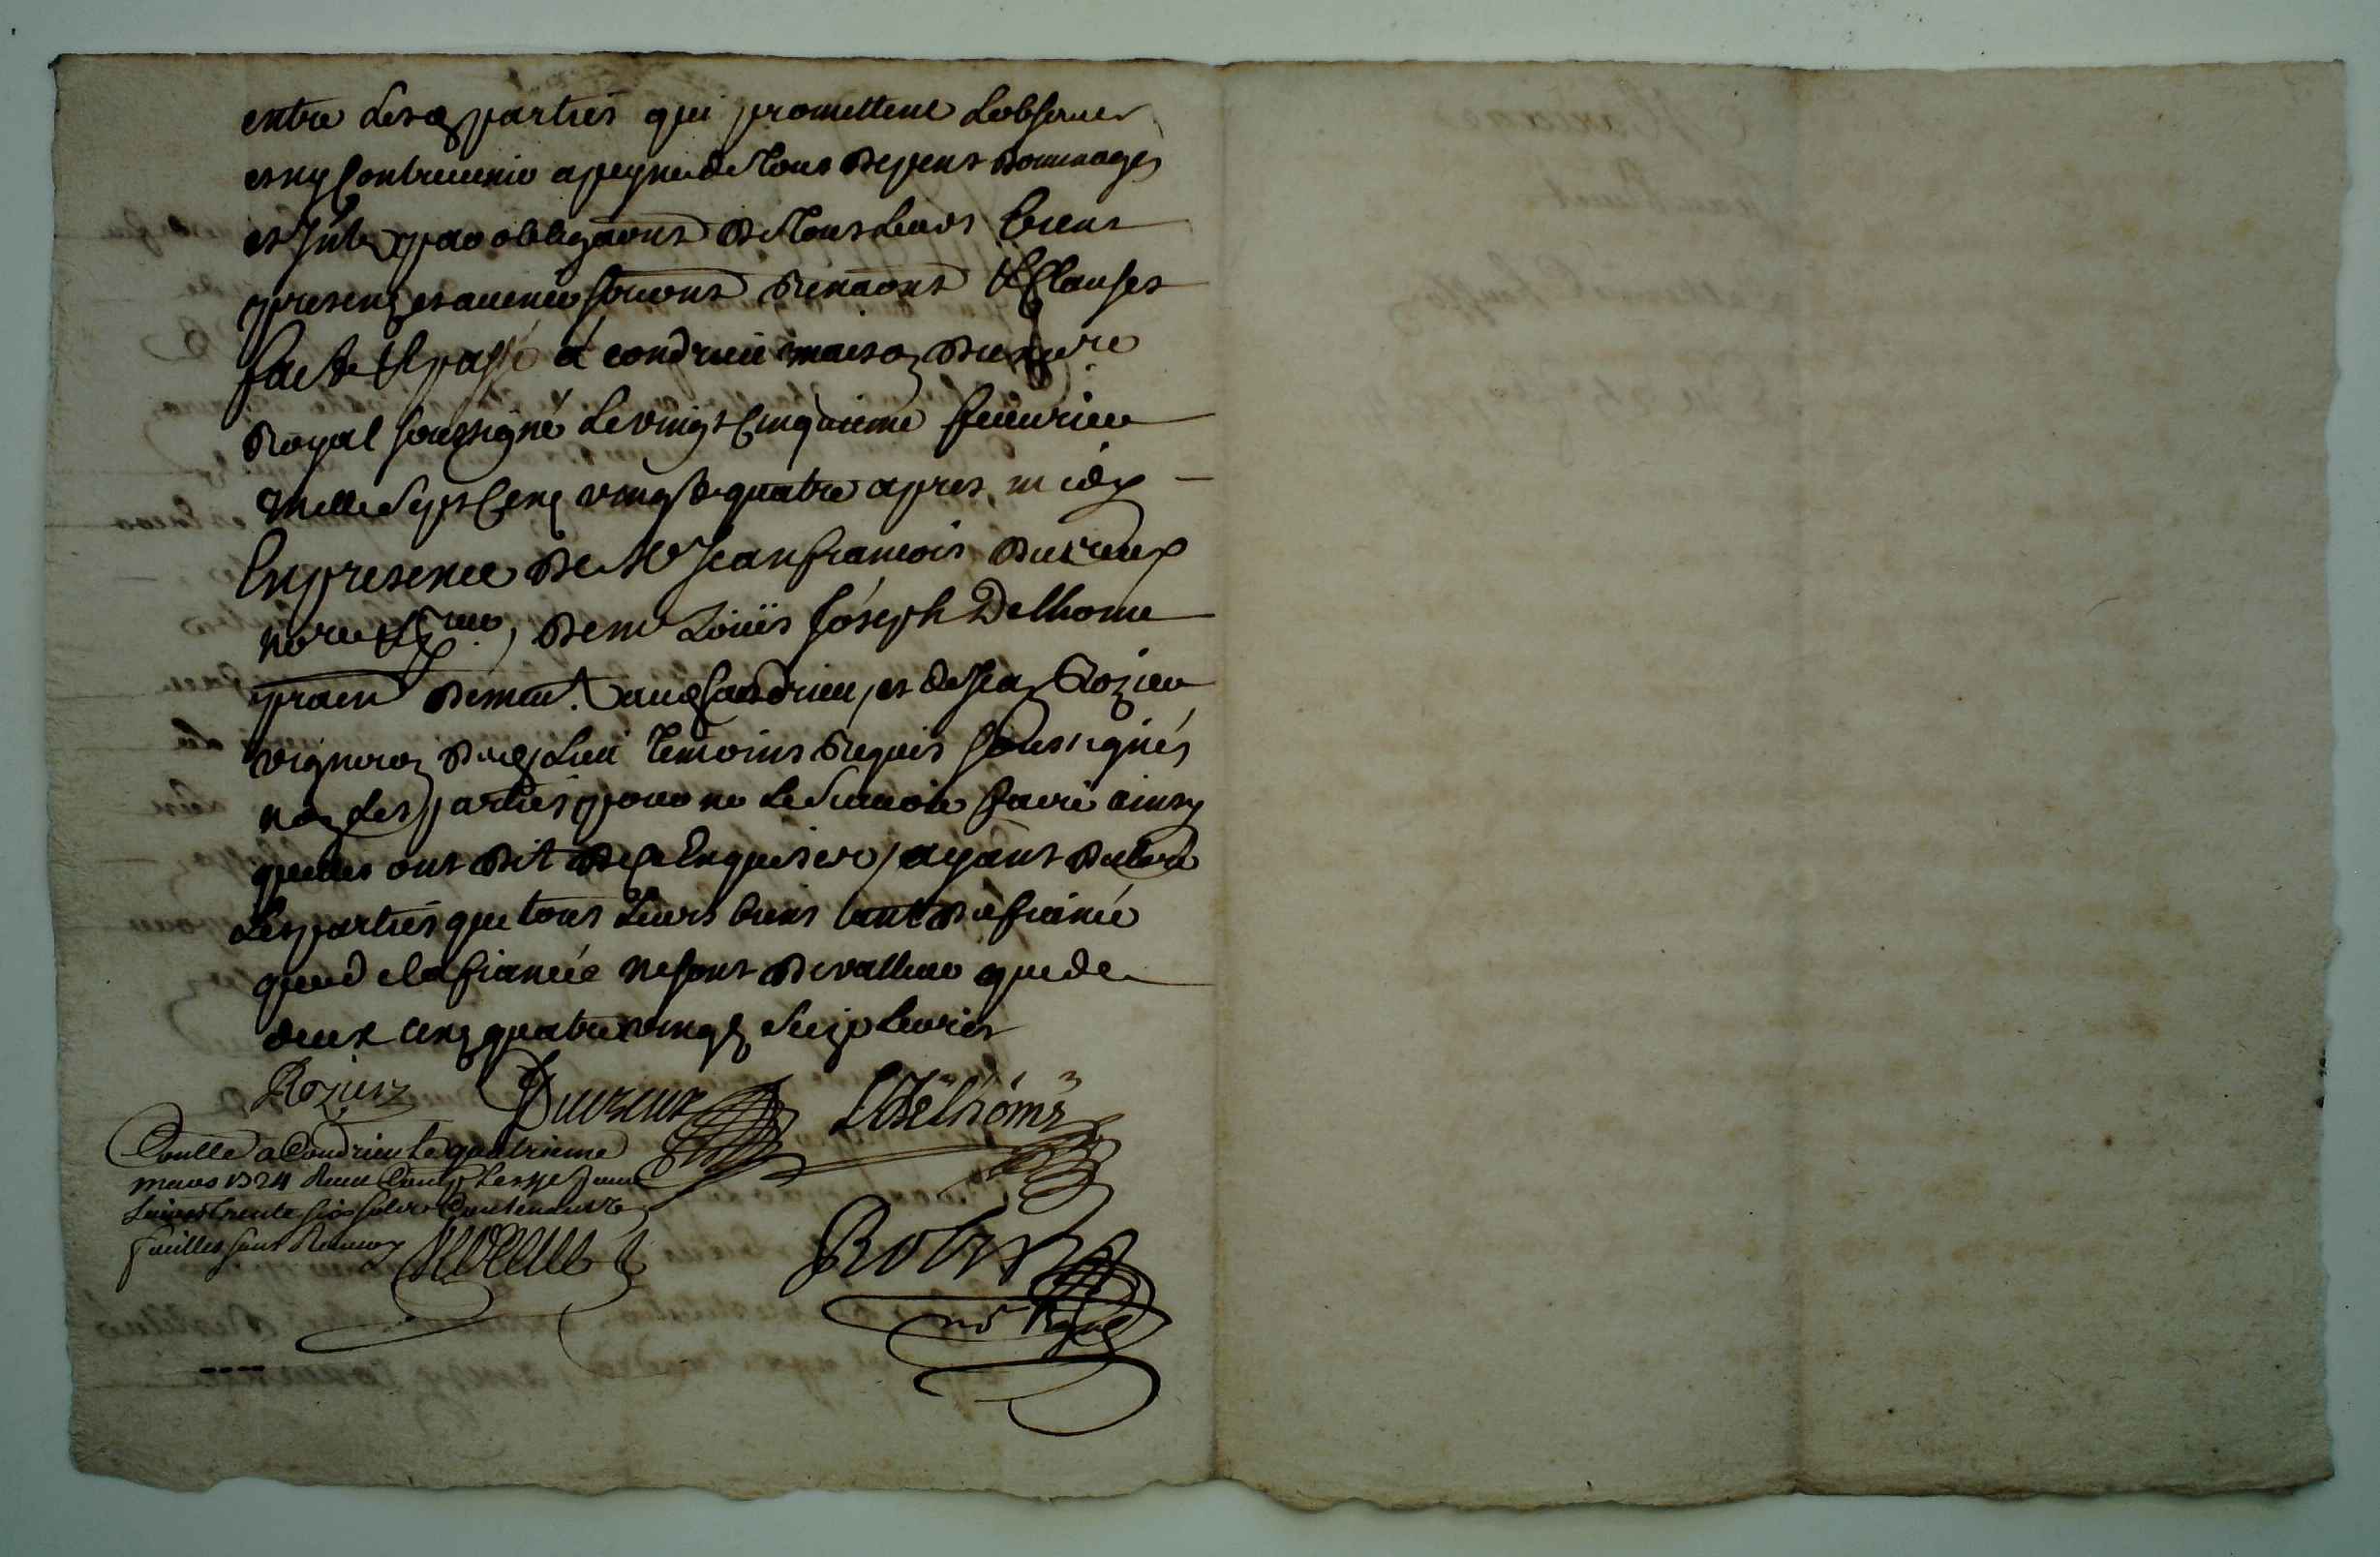 entre lesd parties qui promettent lobserver
et ny contrevenir a peyne de tous depens dommages
et Intes par obligaons de tous leurs biens
presens et avenir soumons renaons & Clauses
fait & passé à condrieu maison du nore
Royal soussigné le vingt cinquieme feuvrier
mille sept cens vingt quatre apres midy
En presence de Me Jean francois Duvreux
nore, de mr Loüis Joséph Delhome
pratn demt. aud Condrieu, et de Jean Rozier
vigneron dud lieu temoins requis soussignés
non les parties pour ne le scavoir faire ainsy
quelles ont dit de ce Enquises, ayant declaré
les parties que tous leurs biens tant du fiancé
que de la fiancée ne sont de valleur que de
deux cens quatre vingt seize livres
Rozier Duvreux LDelhome
Conllé a Condrieu le quatrieme
mars 1724 Receu
livres trente six sols
feuilles sans Renvoy
Robin
nore Royal